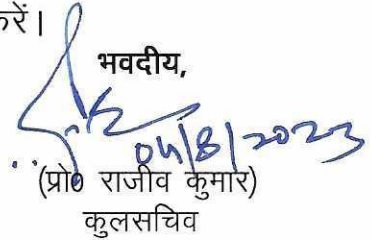 करें।
भवदीय,
04/8/2023
(प्रो० राजीव कुमार)
कुलसचिव